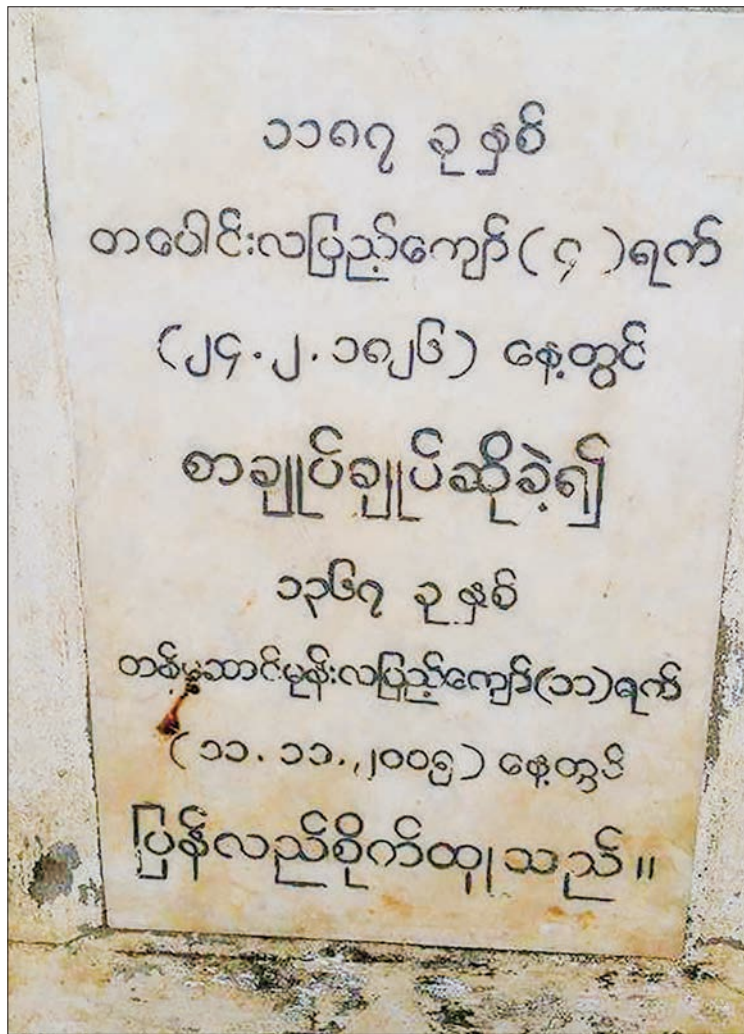 ၁၁၈၇ ခု နှစ်
တပေါင်းလပြည့်ကျော် ( ၄ ) ရက်
(၂၄.၂.၁၈၂၆) နေ့တွင်
စာချုပ်ချုပ်ဆိုခဲ့၍
၁၃၆၇ ခု နှစ်
တန်ဆောင်မုန်းလပြည့်ကျော်(၁၁)ရက်
(၁၁.၁၁.၂၀၀၅) နေ့တွင်
ပြန်လည်စိုက်ထူသည်။